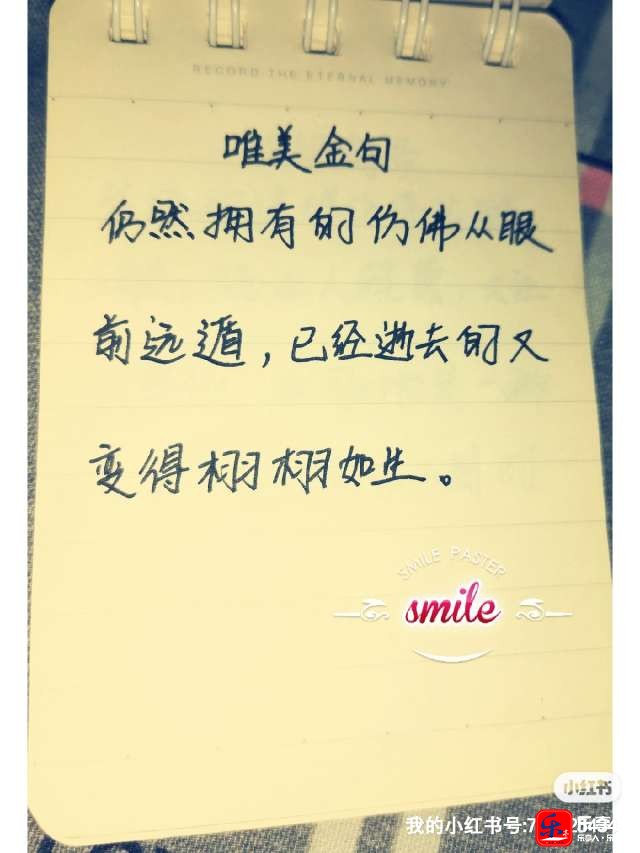 RECORD THE ETERNAL MEMORY
唯美金句
仍然拥有的仿佛从眼
前远遁，已经逝去的又
变得栩栩如生。
SMILE PASTER
smile
小红书
我的小红书号:7
乐